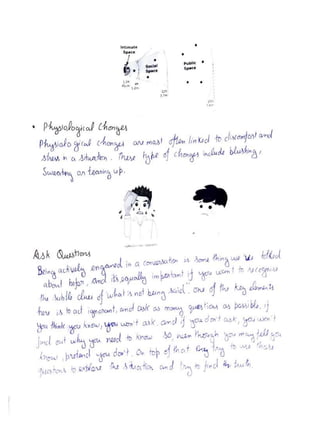 Intimate
Space
Social
Space
Public
Space
• Physiological Changes
Physiological changes are most often linked to discomfort and
stress in a situation. These type of changes include blushing,
Sweating or tearing up.
Ask Questions
Being actively engaged in a conversation is some thing we talked
about before, and its equally important if you want to recognise
the subtle clues of what is not being said. One of the key elements
here is to act ignorant, and ask as many questions as possible, if
you think you know, you won't ask and if you don't ask, you won't
find out why you need to know so, even though you may tell you
know, pretend you don't. On top of that try to use those
questions to explore the situation and try to find the truth.